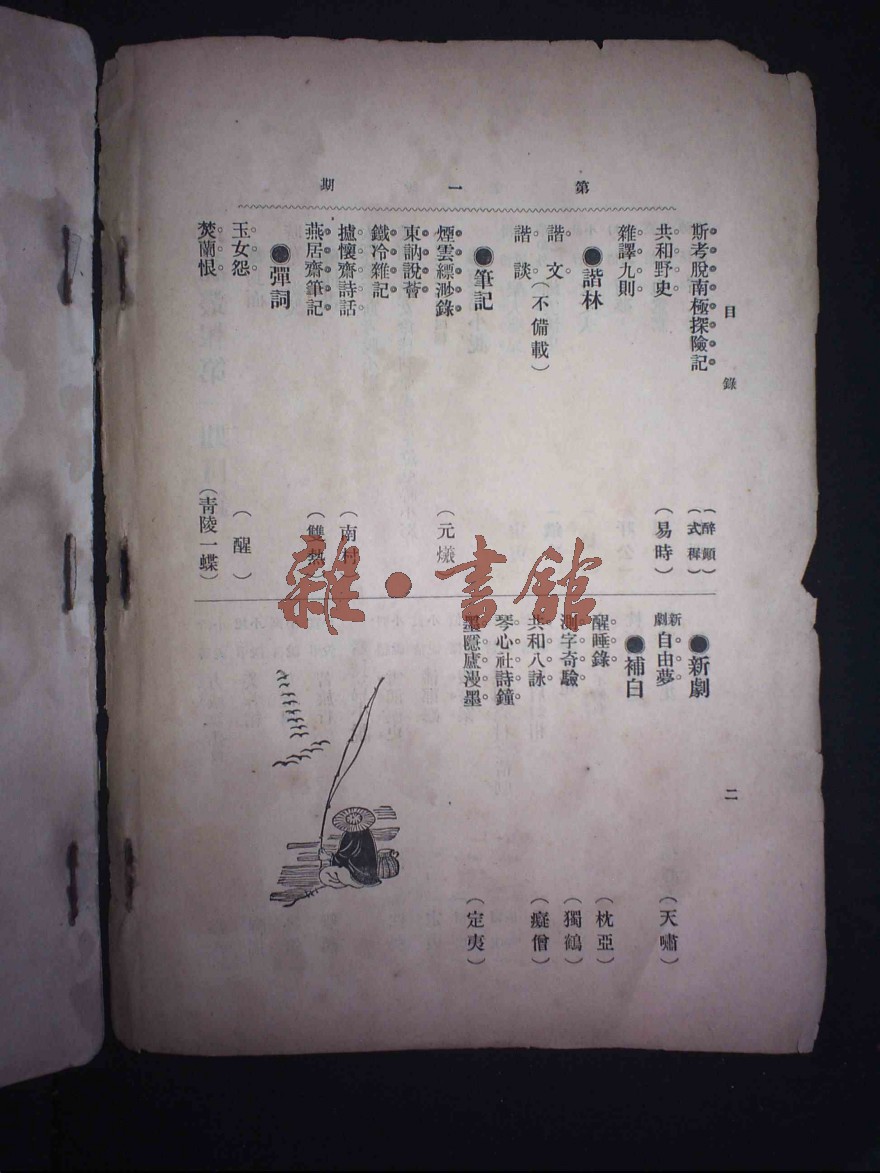 目錄
二
第一期
斯考脫南極探險記
（醉顛 式穉）
共和野史
（易時）
雜譯九則
●諧林
諧文
諧談
（不備載）
●筆記
煙雲縹渺錄
（元爔）
東訥說薈
鐵冷雜記
攄懷齋詩話
（南村）
燕居齋筆記
（雙熱）
●彈詞
玉女怨
（醒）
焚蘭恨
（青陵一蝶）
●新劇
新劇自由夢
（天嘯）
●補白
醒睡錄
（枕亞）
測字奇驗
（獨鶴）
共和八詠
（癡僧）
琴心社詩鐘
墨隱廬漫墨
（定夷）
雜·書館